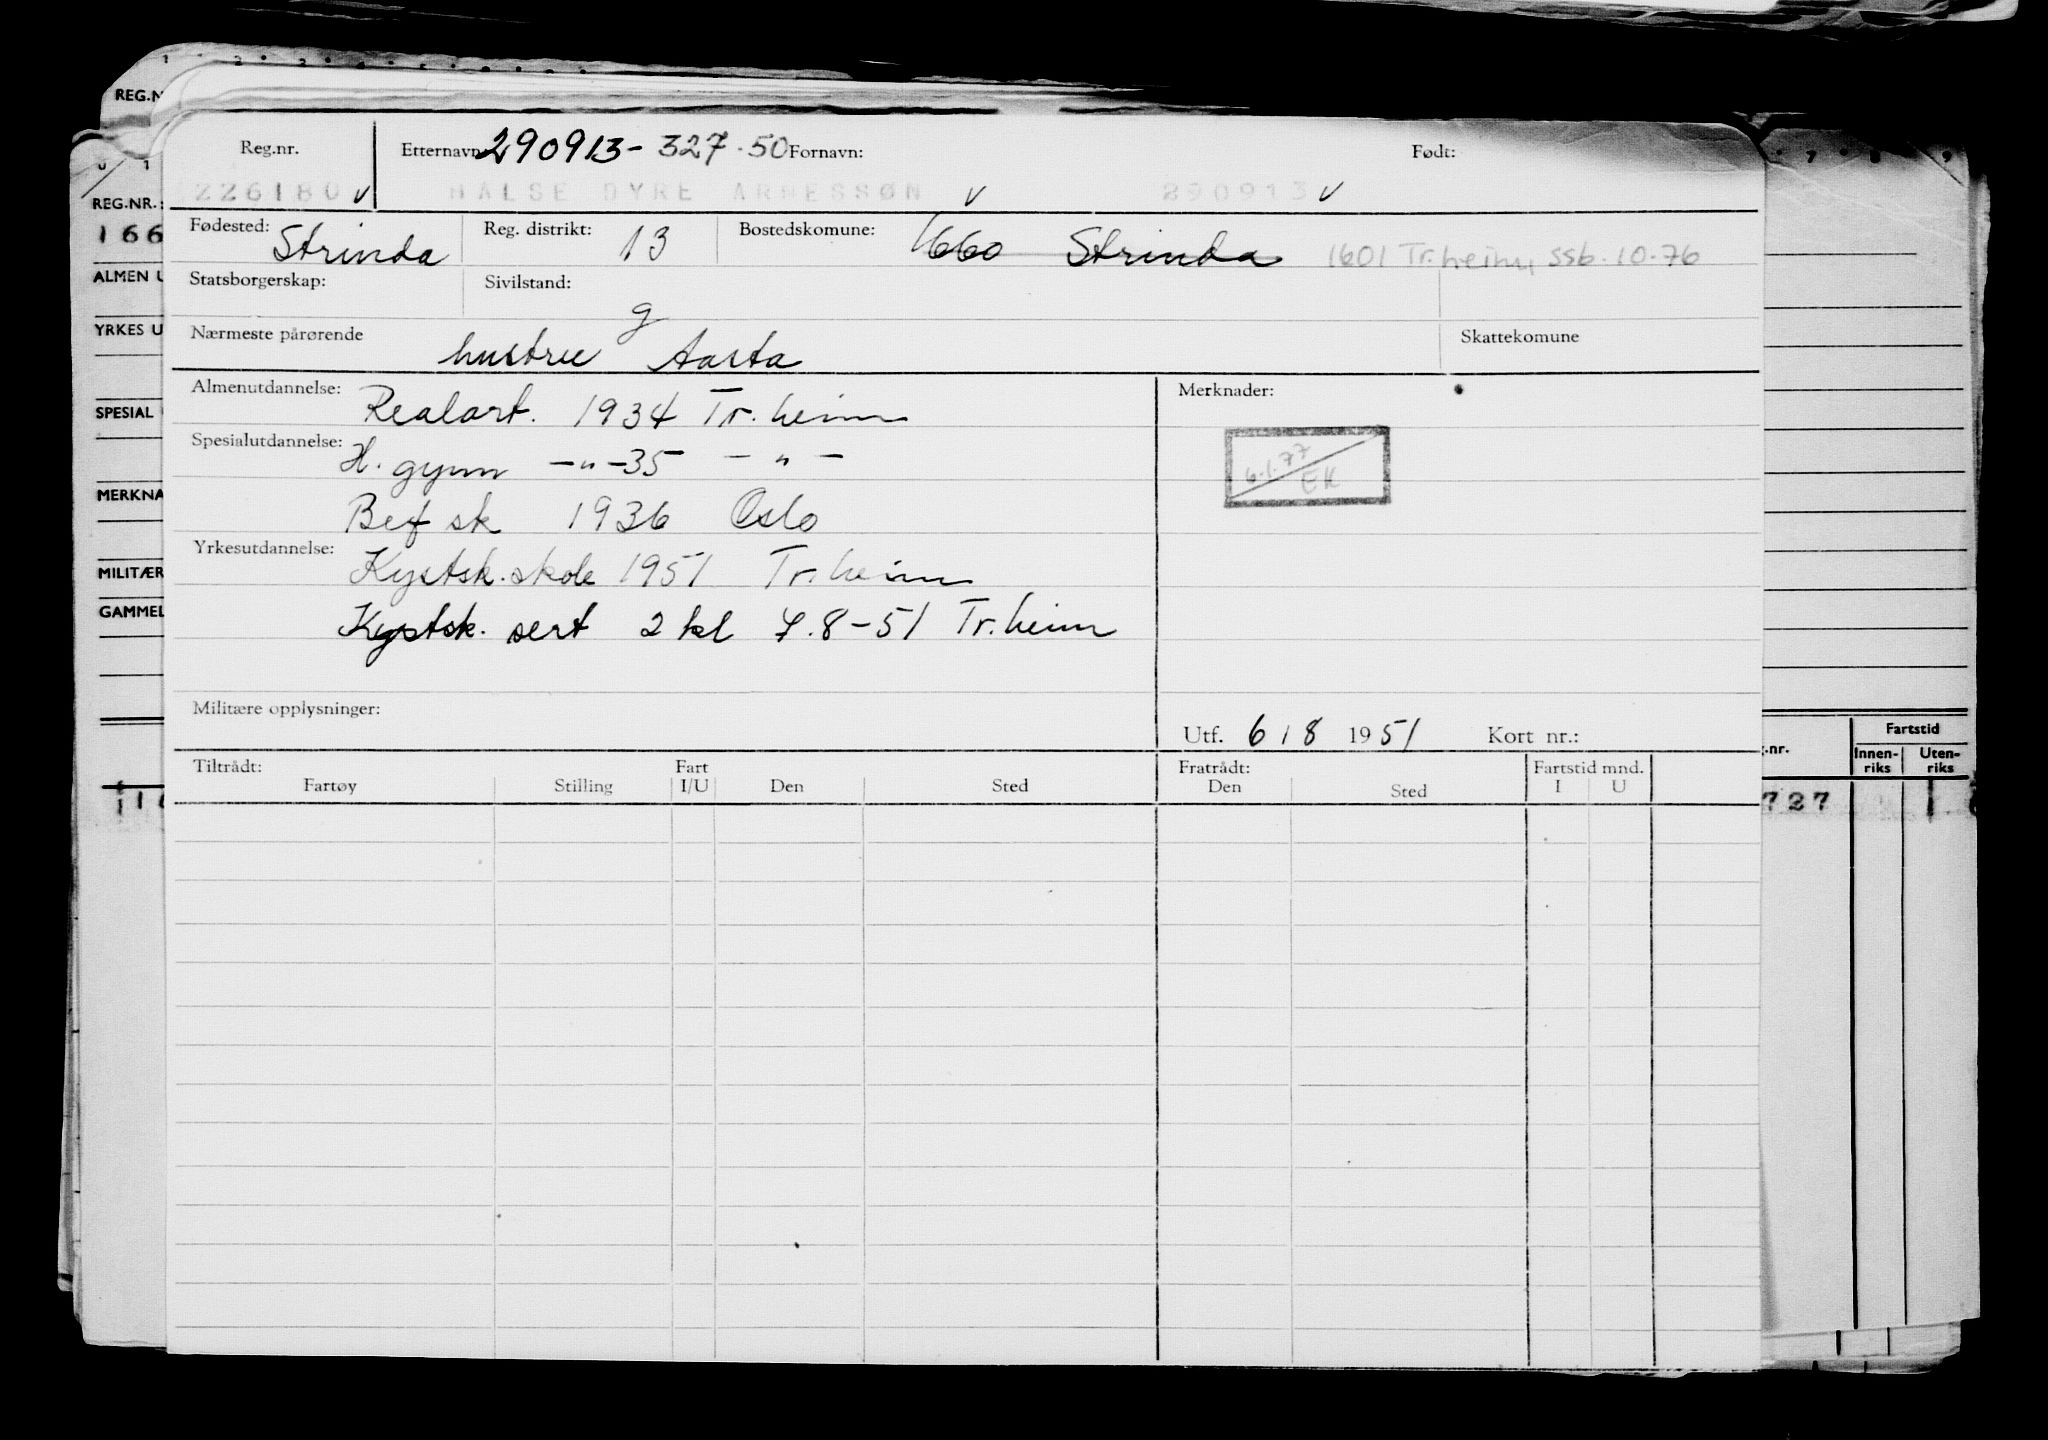 1 2 3 4 5 6
REG.N
Reg.nr. Etternavn 290913- 327.50 Fornavn: Født:
226180 v HALSE DYRE ARNESSØN v 290913 v
0 1 7 8 9
REG.NR.:
Fødested: Strinda Reg. distrikt: 13 Bostedskomune: 1660 Strinda 1601 Tr.heim, ssb. 10-76
166
ALMEN U Statsborgerskap: Sivilstand: g
YRKES U Nærmeste pårørende hustru Aasta Skattekomune
Almenutdannelse: Realart. 1934 Tr. heim Merknader:
SPESIAL
Spesialutdannelse: H. gymn -"-35 - " -
6.1.77
EK
MERKNA
Bef sk 1936 Oslo
Yrkesutdannelse: Kystsk. skole 1951 Tr.heim
MILITÆR
GAMMEL
Kystsk. sert 2 kl 7.8-51 Tr.heim
Militære opplysninger:
Utf. 6 / 8 1951 Kort nr.:
.nr. Fartstid
Innen-riks Uten-riks
Tiltrådt: Fart Fratrådt: Fartstid mnd.
Fartøy Stilling I/U Den Sted Den Sted I U
727 1